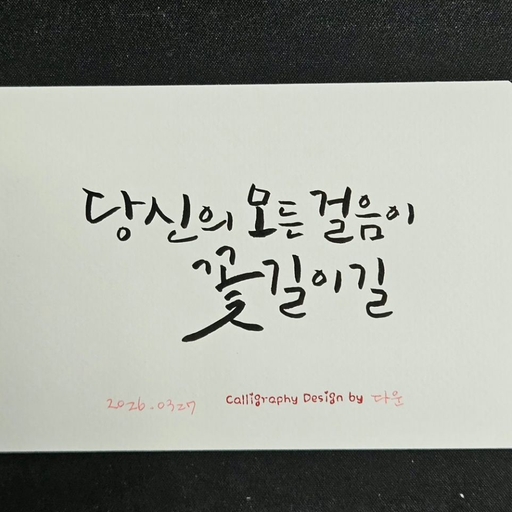 당신의 모든 걸음이
꽃길이길
2026.0327 Calligraphy Design by 다운